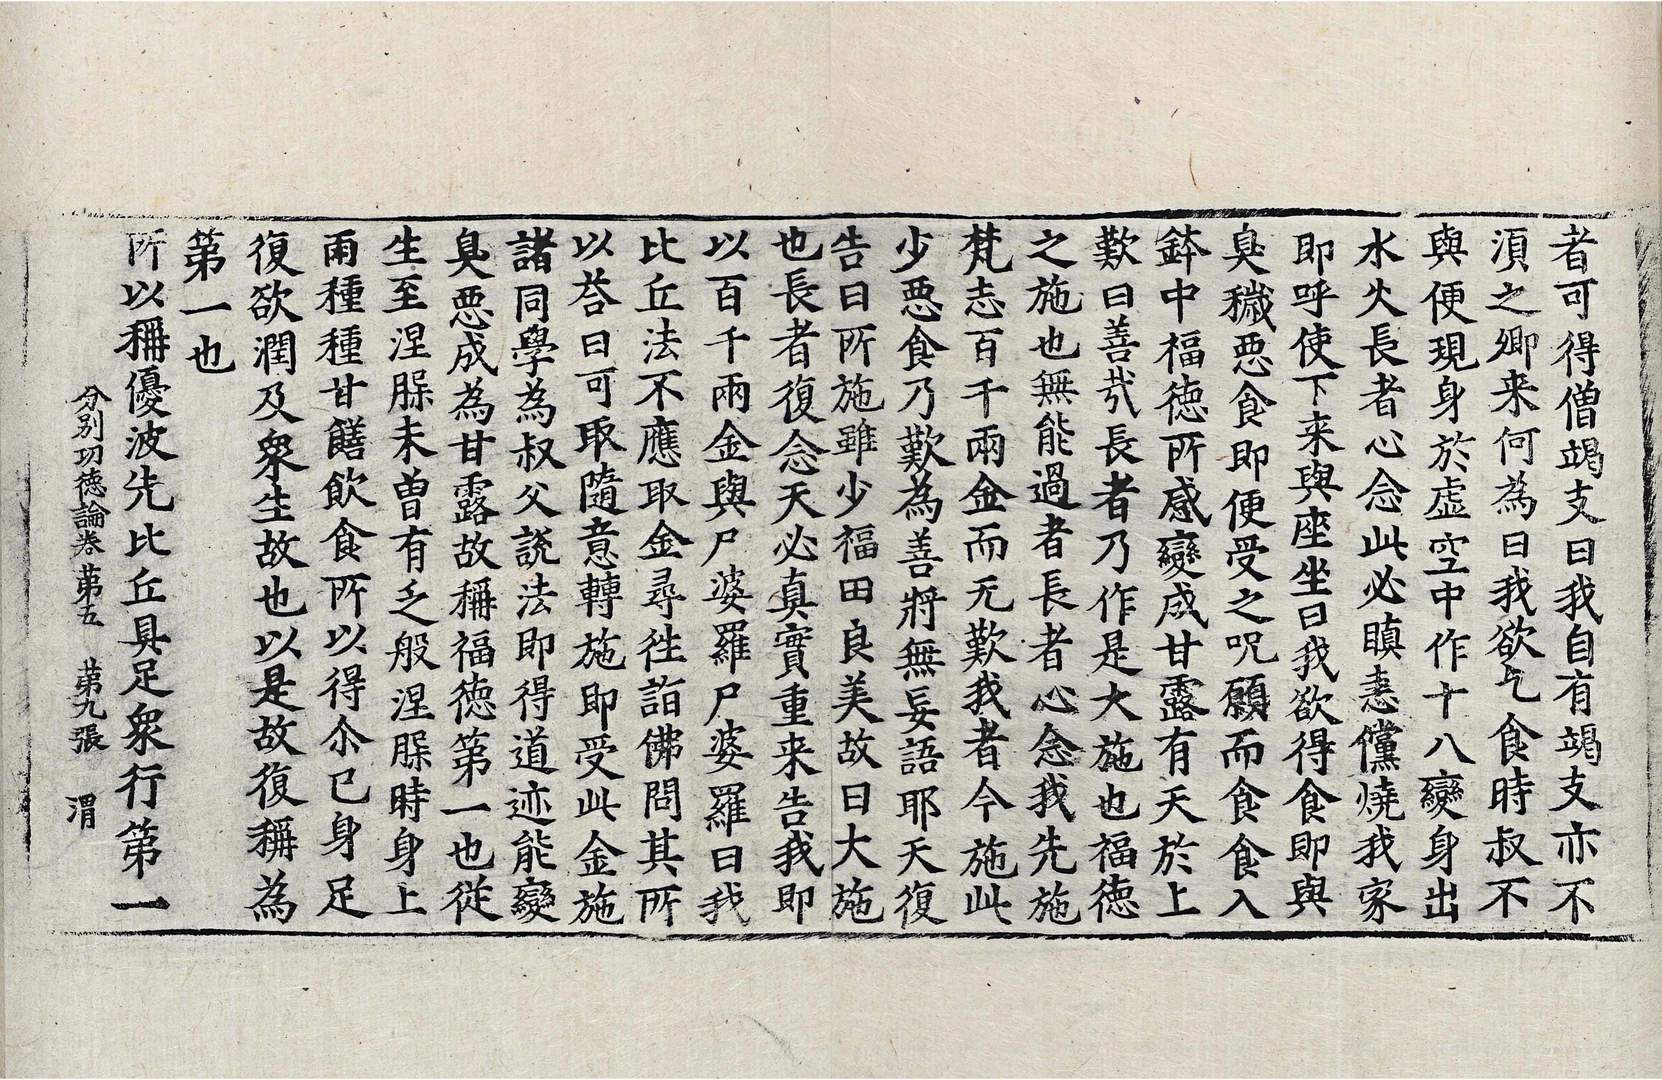 者可得僧竭支曰我自有竭支亦不
湏之卿来何為曰我欲乞食時叔不
與便現身於虛空中作十八變身出
水火長者心念此必瞋恚儻燒我家
即呼使下来與座坐曰我欲得食即與
臭穢惡食即便受之呪願而食食入
鉢中福徳所感變成甘露有天於上
歎曰善㢤長者乃作是大施也福德
之施也無能過者長者心念我先施
梵志百千兩金而无歎我者今施此
少惡食乃歎為善將無妄語耶天復
告曰所施雖少福田良美故曰大施
也長者復念天必真實重来告我即
以百千兩金與尸婆羅尸婆羅曰我
比丘法不應取金尋往詣佛問其所
以荅曰可取隨意轉施即受此金施
諸同學為叔父說法即得道迹能變
臭惡成為甘露故稱福徳第一也從
生至涅脲未曽有乏般涅脲時身上
雨種種甘饍飲食所以得尒已身足
復欲潤及衆生故也以是故復稱為
第一也
所以稱優波先比丘具足衆行第一
分別功徳論卷第五 第九張 渭